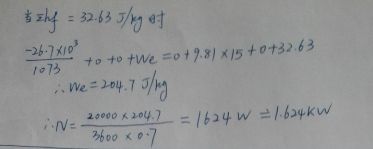 当Σhf = 32.63 J/kg 时
-26.7×10³/1073 + 0 + 0 + We = 0 + 9.81 × 15 + 0 + 32.63
∴ We = 204.7 J/kg
∴ N = 20000 × 204.7/3600 × 0.7 = 1624 W ≐ 1.624 KW